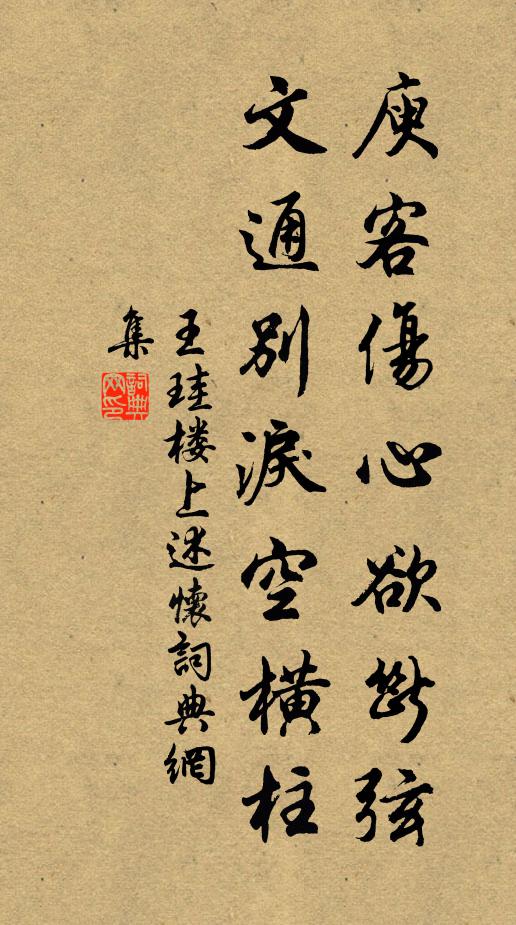 庾客傷心欲斷弦
文通別淚空橫柱
王珪楼上述懷詞典網
集
詞典
網印